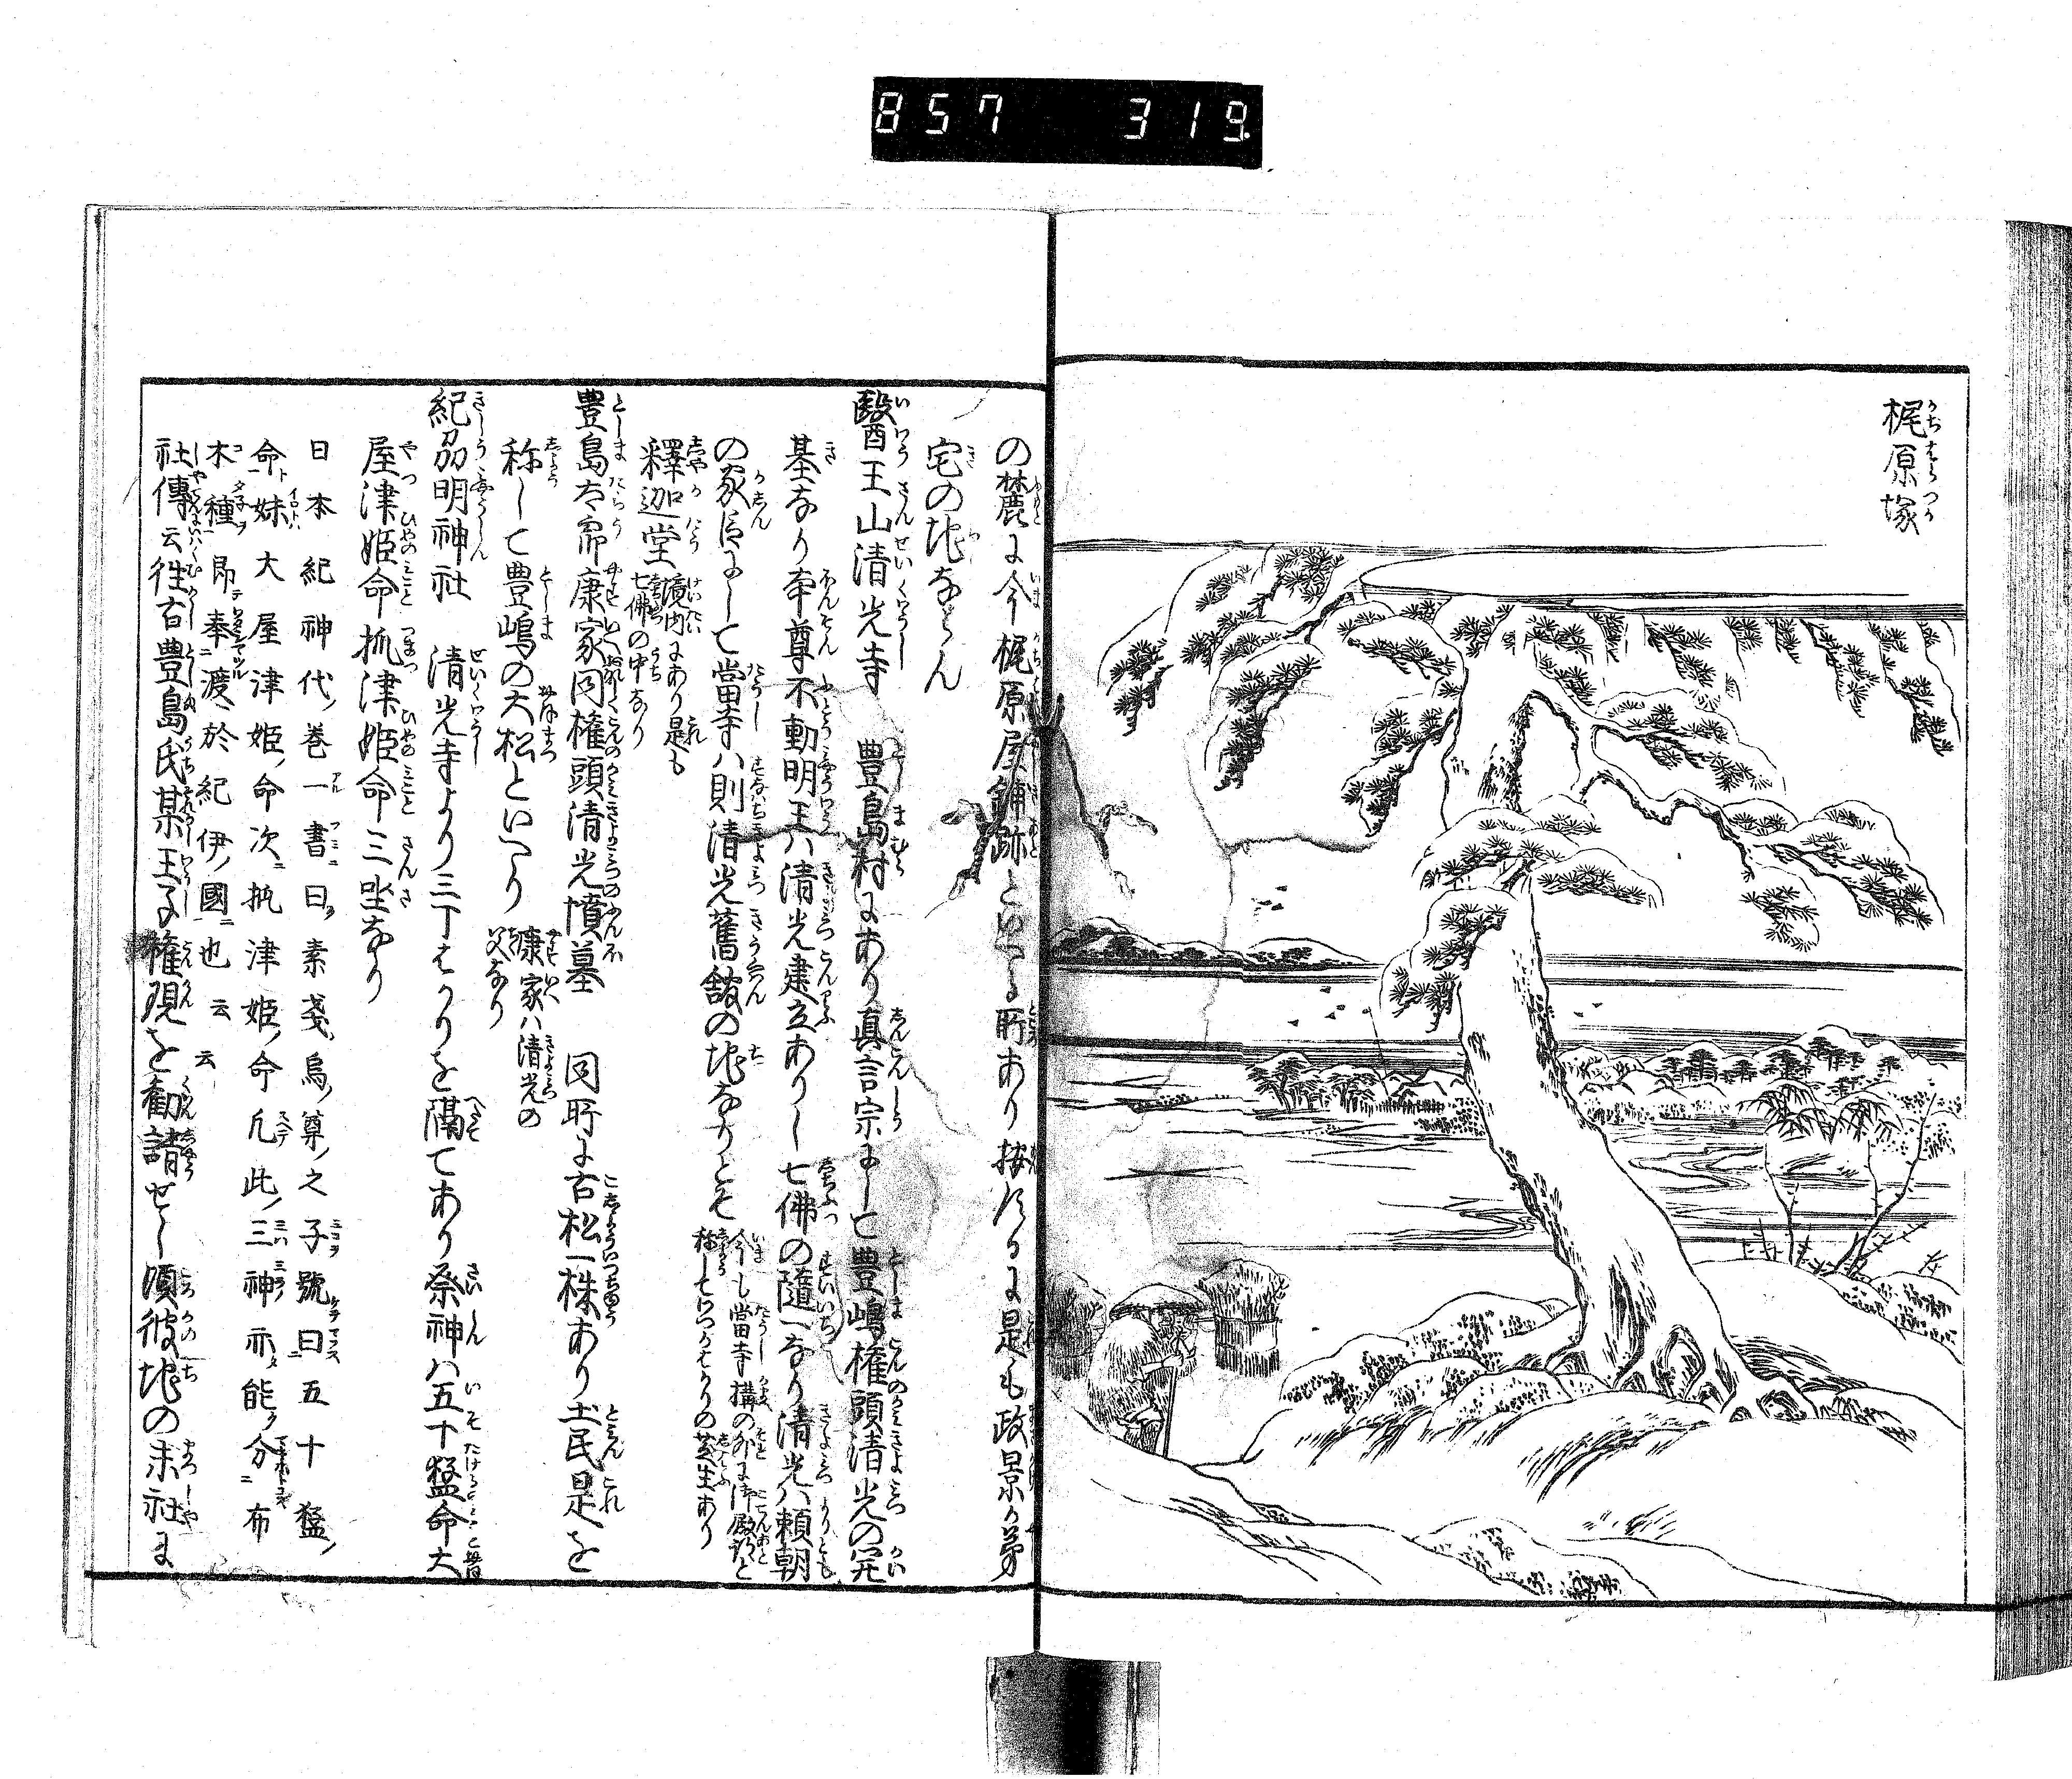 857 319
梶原塚
の麓に今梶原屋鋪跡といへる所あり按するに是も政景か第
宅の地ならん
醫王山清光寺 豊島村にあり真言宗にして豊嶋権頭清光の開
基なり本尊不動明王ハ清光建立ありし七佛の隨一なり清光ハ頼朝
の家臣にして當寺ハ則清光舊舘の地なりとそ今も當寺構の外に御殿跡と
称してわつかはかりの芝生あり
釋迦堂境内にあり是も
七佛の中なり
豊島太郎康家同権頭清光墳墓 同所に古松一株あり土民是を
称して豊嶋の大松といへり康家ハ清光の
父なり
紀刕明神社 清光寺より三丁はかりを隔てあり祭神ハ五十猛命大
屋津姫命抓津姫命三坐なり
日本紀神代巻一書曰素戔烏尊之子號曰五十猛
命妹大屋津姫命次抓津姫命凡此三神亦能分布
木種即奉渡於紀伊國也云云
社傳云徃古豊島氏某王子権現を勸請せし頃彼地の末社に